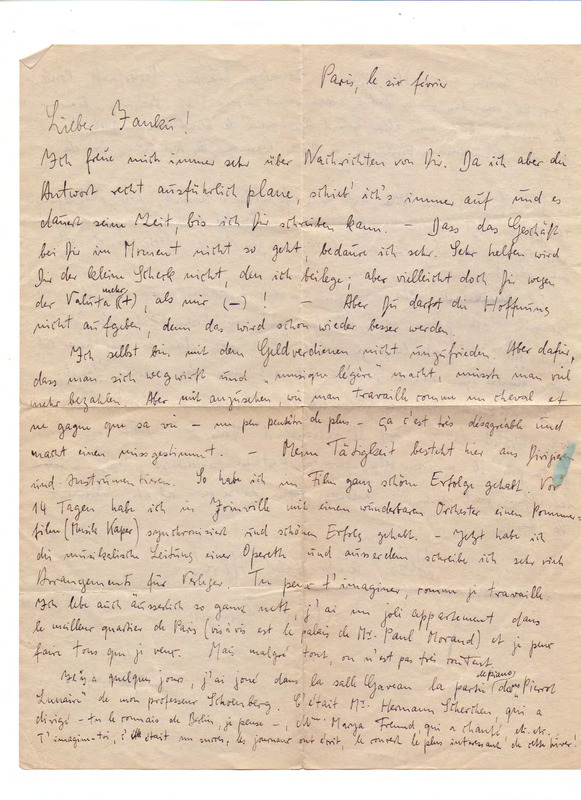 Paris, le six février
Lieber Janku!
Ich freue mich immer sehr über Nachrichten von Dir. Da ich aber die
Antwort recht ausführlich plane, schieb' ich's immer auf und es
dauert seine Zeit, bis ich Dir schreiben kann. – Dass das Geschäft
bei Dir im Moment nicht so geht, bedaure ich sehr. Sehr helfen wird
Dir der kleine Scheck nicht, den ich beilege; aber vielleicht doch Dir wegen
der Valuta mehr (+), als mir (–)! – Aber Du darfst die Hoffnung
nicht aufgeben, denn das wird schon wieder besser werden.
Ich selbst bin mit dem Geldverdienen nicht unzufrieden. Aber dafür,
dass man sich wegwirft und „musique légère" macht, müsste man viel
mehr bezahlen. Aber mit anzusehen, wie man travaille comme un cheval et
ne gagne que sa vie – un peu de plus – ça c'est très désagréable und
macht einen missgestimmt. – Meine Tätigkeit besteht hier aus Dirigieren
und Instrumentieren. So habe ich im Film ganz schöne Erfolge gehabt. Vor
14 Tagen habe ich in Joinville mit einem wunderbaren Orchester einen Pommer-
film (Musik Kaper) synchronisiert und schönen Erfolg gehabt. – Jetzt habe ich
die musikalische Leitung einer Operette und ausserdem schreibe ich sehr viel
Arrangements für Verleger. Tu peux t'imaginer, comme je travaille.
Ich lebe auch äusserlich so ganz nett, j'ai un joli appartement dans
le meilleur quartier de Paris (vis à vis est le palais de Mr. Paul Morand) et je peux
faire tous que je veux. Mais malgré tout, on n'est pas très content.
Il y a quelques jours, j'ai joué dans la salle Gaveau la partie de piano (dans „Pierrot
Lunaire" de mon professeur Schoenberg. C'était Mr. Hermann Scherchen, qui a
dirigé – tu le connais de Berlin, je pense –, Mme Marya Freund qui a chanté etc. etc.
T'imagine-toi, c'était un succès, les journeaux ont écrit, le concert le plus interessant de cette hiver!